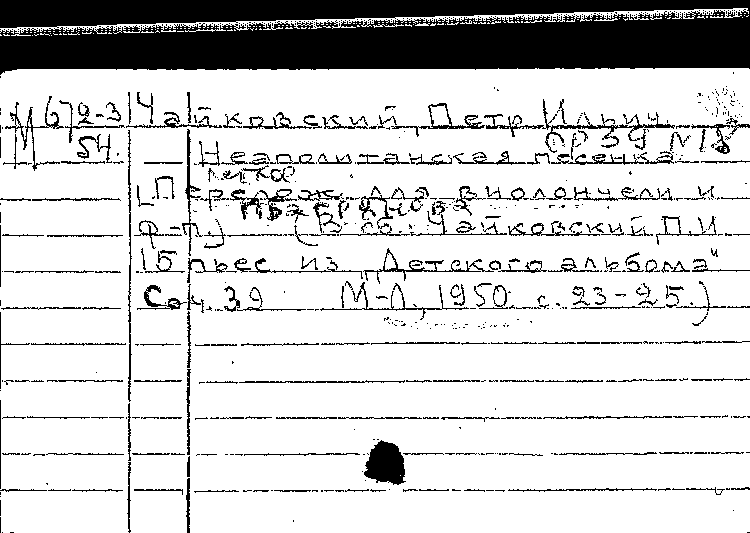 М 672-3 Чайковский, Петр Ильич.
54. ор 39 N 18
Неаполитанская песенка
легкое
[Перелож. для виолончели и
ф-п.] (В сб.: Чайковский, П.И.
15 пьес из „Детского альбома"
Соч. 39 М-Л., 1950. с. 23-25.)